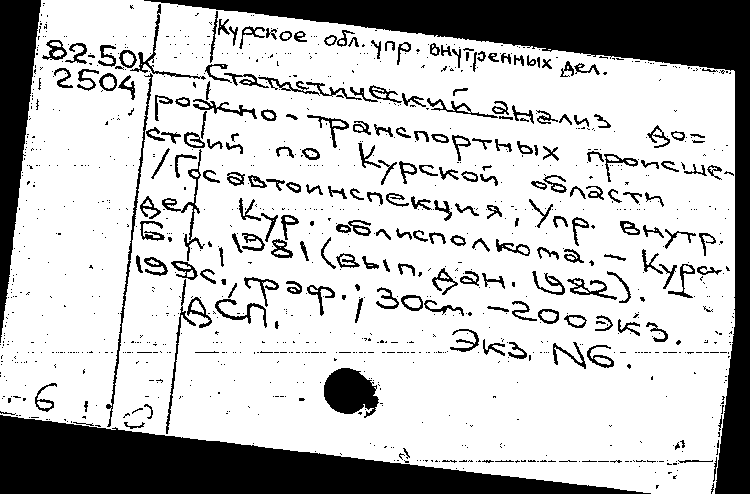 Курское обл. упр. внутренных дел.
82-50К
2504
Статистический анализ до=
рожно-транспортных происше-
ствий по Курской области
/Госавтоинспекция, Упр. внутр.
дел Кур. облисполкома. – Курск:
Б. и., 1981 (вып. дан. 1982). –
199с., граф.; 30см. – 200экз.
ДСП.
Экз. N6.
6